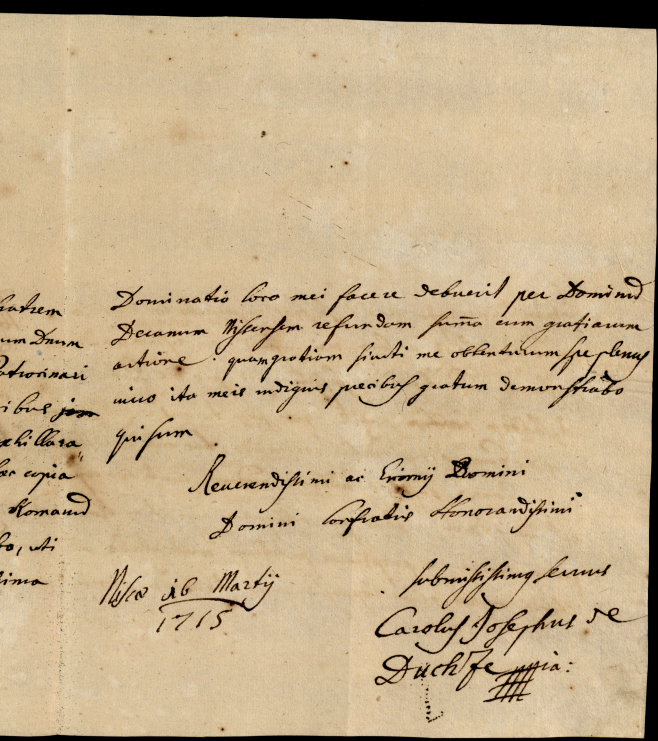 fratrem
um Dnum
Patrocinari
ribus
chillara
haec copia
Romanū
uti
sima
Dominatio loco mei facere debuerit per Dominū
Decanum Viscensem refundam sum̄a cum gratiarum
actione: quam gratiam sicuti me obtenturum spe plenus
vivo ita meis indignis precibus gratum demonstrabo
qui sum
Reverendissimi ac Domini
Domini Confratris Honorandissimi
Martij
1715
submissisimus servus
Carolus Josephus de